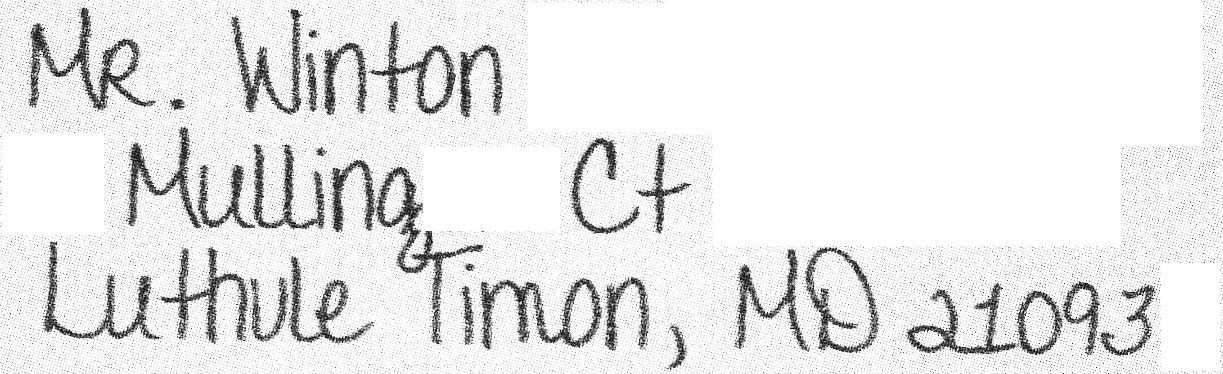 Mr. Winton
Mulling Ct
Luthule Timon, MD 21093